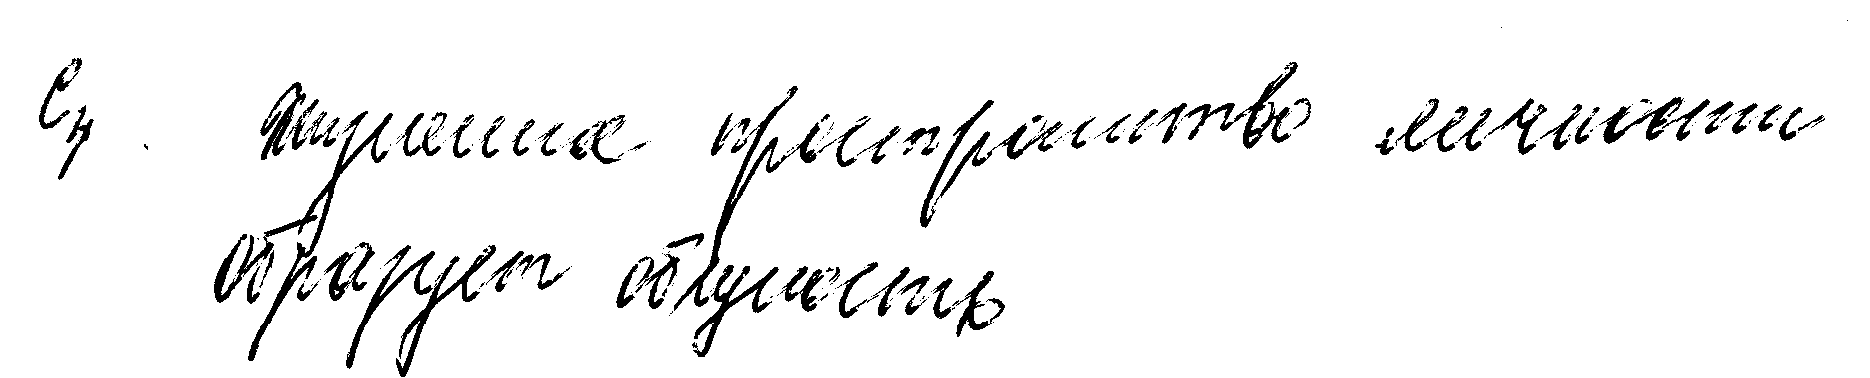 С4. Жизненное пространство личности
образует общность